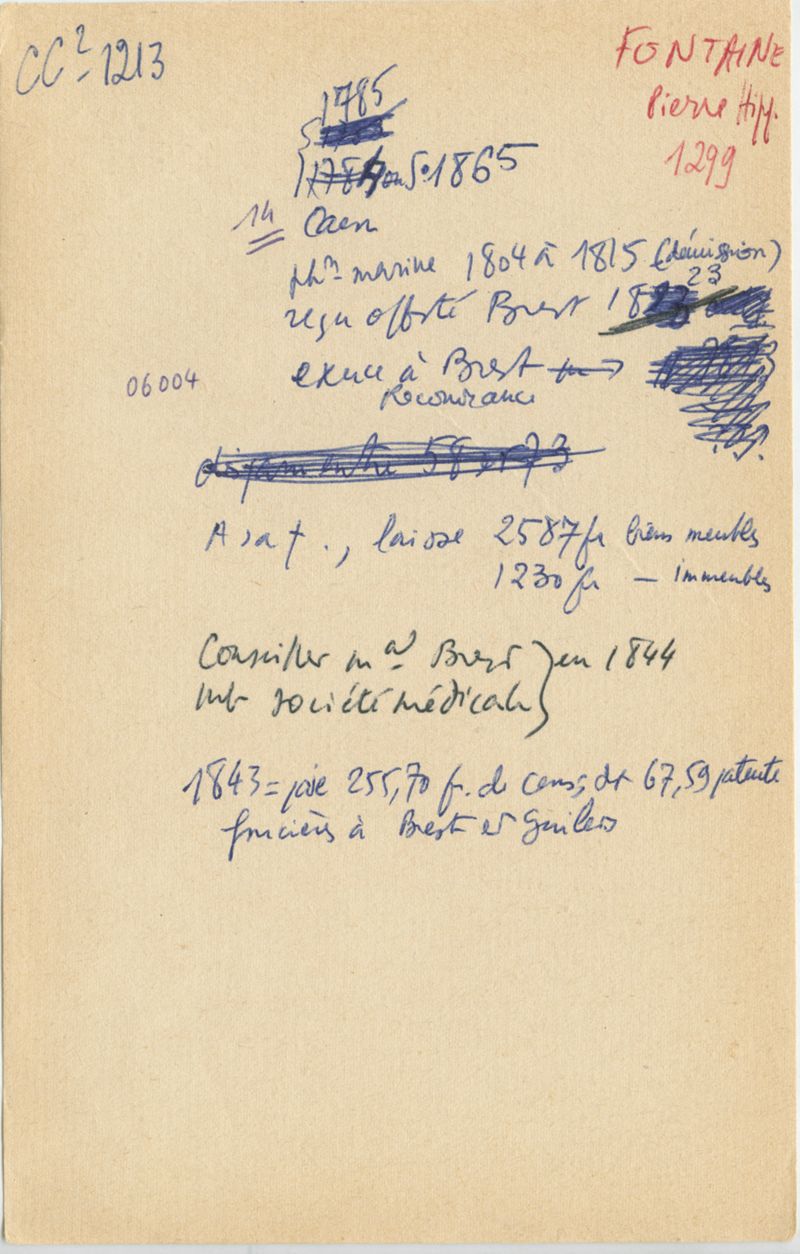 CC² - 1213
FONTAINE
Pierre Hipp.
1299
1785
1865
14 Caen
phⁿ marine 1804 à 1815 (démission)
reçu offté Brest 18 23
exerce à Brest →
Recouvrance
06004
disparu entre 58 et 73
A sa † ., laisse 2587 fr biens meubles
1230 fr — immeubles
Conseiller mᵃˡ Brest } en 1844
mb société médicale
1843 = paie 255,70 fr. de cens; dt 67,59 patente
foncières à Brest et Guilers